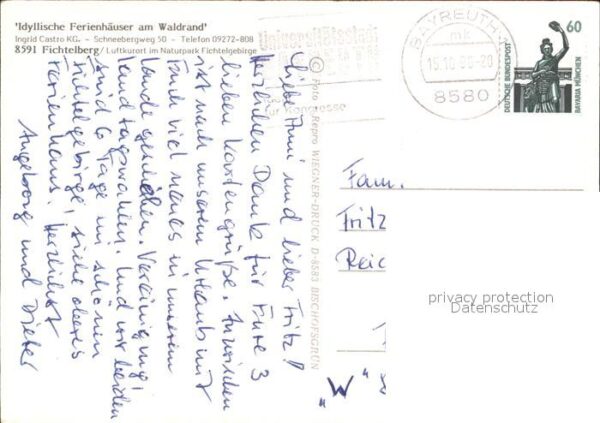 'Idyllische Ferienhäuser am Waldrand'
Ingrid Castro KG. - Schneebergweg 50 - Telefon 09272-808
8591 Fichtelberg / Luftkurort im Naturpark Fichtelgebirge
Universitätsstadt
für Kongresse
BAYREUTH
mk
15.10.90-20
8580
60
DEUTSCHE BUNDESPOST
BAYARIA MÜNCHEN
© Foto + Repro WIEGNER-DRUCK D-8583 BISCHOFSGRÜN
Liebe Anni und lieber Fritz!
Herzlichen Dank für Eure 3
lieben Kartengrüße. Inzwischen
ist nach unserem Urlaub mit
Euch viel neues in unserem
Lande geschehen. Vereinigung!
Landtagswahlen. Und wir beiden
sind 6 Tage im schönen
Fichtelgebirge, siehe oberes
Ferienhaus. Herzlichst
Angeborg und Dieter
Fam.
Fritz
Reic
"W"
privacy protection
Datenschutz